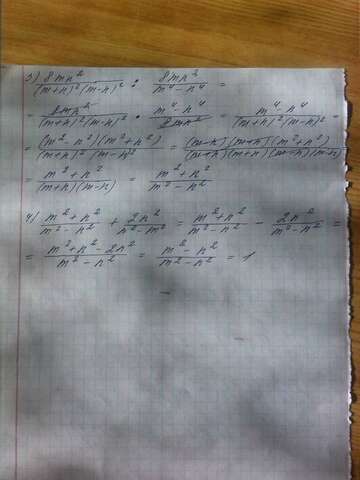 3) 8mn²/(m+n)²(m-n)² : 8mn²/m⁴-n⁴ =
= 8mn²/(m+n)²(m-n)² · m⁴-n⁴/8mn² = m⁴-n⁴/(m+n)²(m-n)² =
= (m²-n²)(m²+n²)/(m+n)²(m-n)² = (m-n)(m+n)(m²+n²)/(m+n)(m+n)(m-n)(m-n) =
= m²+n²/(m+n)(m-n) = m²+n²/m²-n²
4) m²+n²/m²-n² + 2n²/n²-m² = m²+n²/m²-n² - 2n²/m²-n² =
= m²+n²-2n²/m²-n² = m²-n²/m²-n² = 1